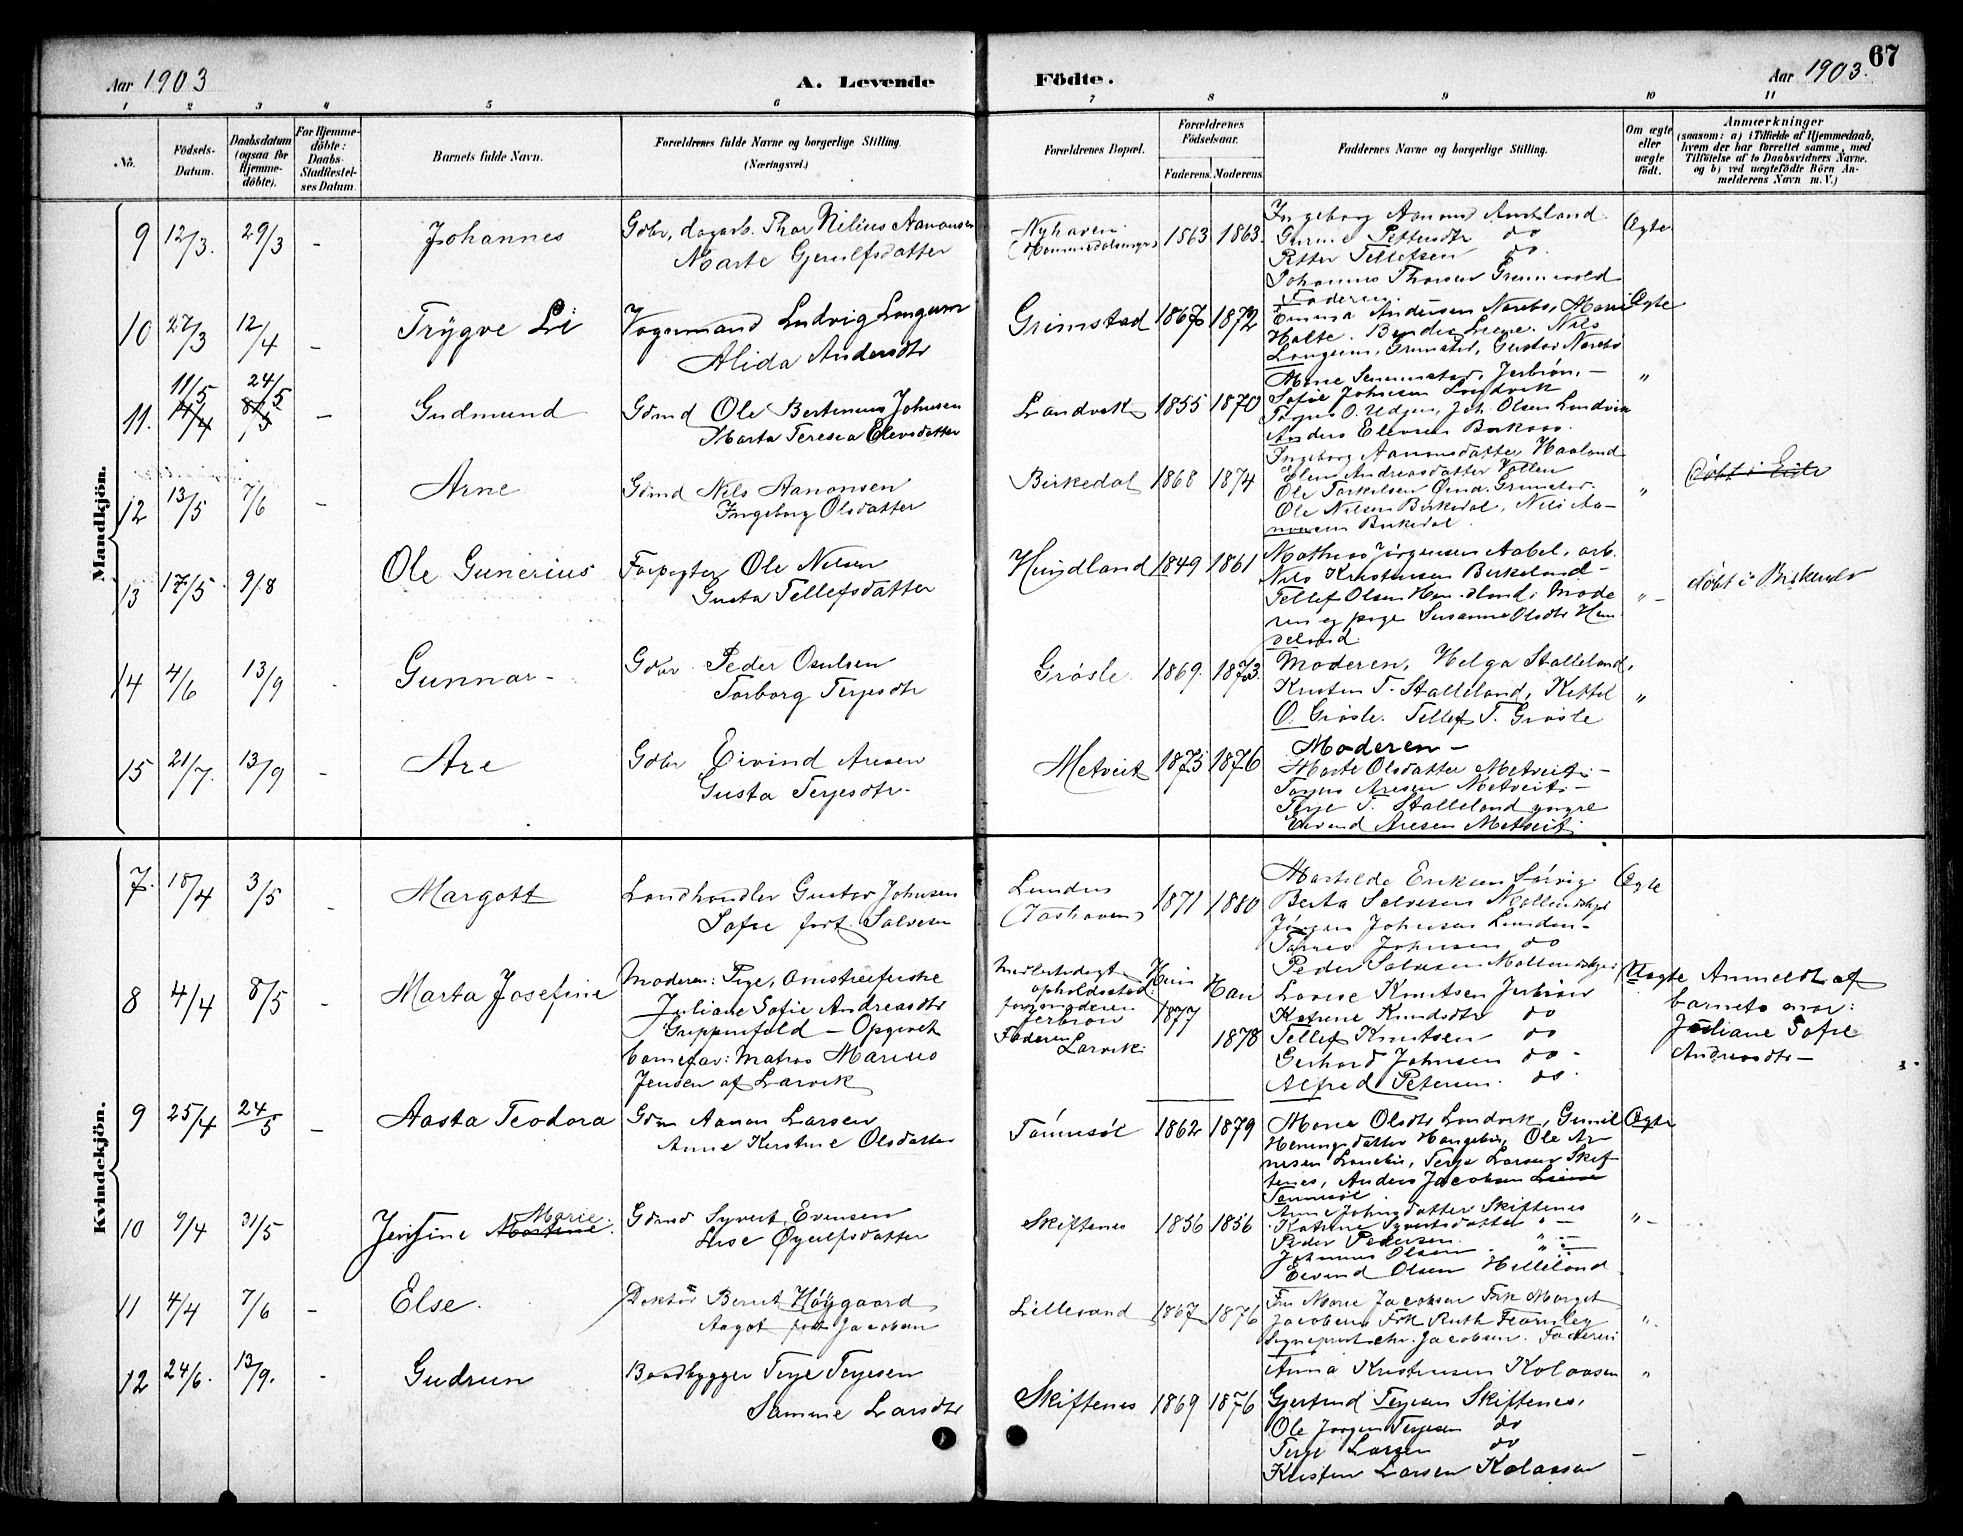 67
Aar 1903
A. Levende
Födte.
Aar 1903.
1 2 3 4 5 6 7 8 9 10 11
No.
Födsels-Datum.
Daabsdatum (ogsaa for Hjemme-döbte).
For Hjemme-döbte: Daabs-Stadfæstel-ses Datum.
Barnets fulde Navn.
Forældrenes fulde Navne og borgerlige Stilling. (Næringsvei.)
Forældrenes Bopæl.
Forældrenes Födselsaar.
Faderens. Moderens.
Faddernes Navne og borgerlige Stilling.
Om ægte eller uægte födt.
Anmærkninger
(saasom: a) i Tilfælde af Hjemmedaab, hvem der har forrettet samme, med Tilföielse af to Daabsvidners Navne, og b) ved uægtefödte Börn An-melderens Navn m. V.)
Mandkjön.
9 12/3. 29/3 - Johannes
Gdbr, dagarb. Thor Nilius Aanonsen
Marte Gjerulfsdatter
Nyhaven
1863 1863.
Ingeborg Aanons Austland
do
Petter Tellefsen do
Johannes Thorsen Grennevold
Faderen.
Ægte
10 27/3 12/4 - Trÿgve Li
Vognmand Ludvig Longum
Alida Andersdtr
Grimstad 1867 1872
Emma Andersen Norebø, Marie
Holte. Nils
Longum, Grimstad, Gustav Norebø
Ægte
11. 11/5 24/5 - Gudmund
Gdmd Ole Bertinius Johnsen
Marta Teresia Elevsdatter
Landvik 1855 1870
Jerbiøn, -
Sofie Johnsen Landvik
Torjus O. Udjen, Joh. Olsen Landvik
Anders Elevsen
"
12 13/5 7/6 - Arne
Gdmd Nils Aanonsen
Ingeborg Olsdatter
Birkedal 1868 1874
Ingeborg Aanonsdatter Haaland
Elen Andreasdatter Vollen
Ole Torkelsen Grimstad.
Ole Nilsen Birkedal, Nils Aa-
nonsen Birkedal.
"
Døbt i Eide
13 17/5 9/8 Ole Gunerius
Forpagter Ole Nilsen
Gusta Tellefsdatter
Hundland 1849 1861
Mathias Jørgensen Aabel, arb.
Nils Kristensen Birkeland -
Tellef Olsen Hundland; Mode
ren og pige Susanne Olsdtr Hun
deland.
" -
døbt i Birkenes
14 4/6 13/9 Gunnar -
Gdbr Peder Osulsen
Torborg Terjesdtr
Grøsle. 1869. 1873.
Moderen, Helga Stalleland,
Kristen T. Stalleland, Kittel
O. Grøsle. Tellef T. Grøsle
"
15 21/7. 13/9 - Are
Gdbr Eivind Aresen
Gusta Terjesdtr.
Metveit 1875 1876
Moderen -
Marte Olsdatter Metveit -
Torjus Aresen Metveit -
Terje T. Stalleland yngre
Eivind Aresen Metveit.
Kvindekjön.
7. 18/4 3/5 - Margott
Landhandler Gustav Johnsen
Sofie født Salvesen
Lunden
1871 1880
Mathilde Eriksen Sørvig
Berta Salvesen
Jørgen Johnsen Lunden -
Johnsen do
Peder Salvesen
Ægte
8 4/4 8/5 - Marta Josefine
Moderen: Pige, omstreiferske
Juliane Sofie Andreasdtr
Grippenfeld - Opgivet
barnefar: Matros Marius
Jensen af Larvik
Midlertidigt
opholdssted
for moderen
Jerbiøn
Faderen
Larvik.
Hun Han
1877
1878
Lovise Knutsen Jerbiøn
Katrine Knudsdtr do
Tellef Knutsen do
Gerhard Johnsen do -
Alfred Petersen. do.
Uægte
Anmeldt af
barnets mor:
Juliane Sofie
Andreasdtr -
9 25/4 24/5 - Aasta Teodora
Aanon Larsen
Anne Kirstine Olsdatter
Tønnesøl 1862 1879
Marie Olsdtr Landvik, Gunil
Heningsdatter Ole Ar-
nesen Terje Larsen Skif
tenes, Anders Jacobsen
Tønnesøl
Ægte
10 9/4 31/5 Jensine Martine Marie.
Gdmd Syvert Evensen
Lise Øyulfsdatter
Skiftenes 1856 1856
Anne Johnsdatter Skiftenes
Katrine Syvertsdatter " -
Peder Pedersen. " -
Johannes Olsen. " -
Eivind Olsen Helleland
" -
11 4/4 7/6 - Else.
Doktor Bernt Høÿgaard
Aagot født Jacobsen
Lillesand 1867 1876
Fru Marie Jacobsen Frk Margit
Jacobsen Frk Ruth Fearnley
Jacobsen. Faderen
".
12 24/6. 13/9. - Gudrun
Baadbygger Terje Terjesen
Samine Larsdtr
Skiftenes 1869 1876
Anna Kristensen Kolaasen
Gjertrud Terjesen Skiftenes,
Ole Jørgen Terjesen do
Terje Larsen do
Kristen Larsen Kolaasen
"